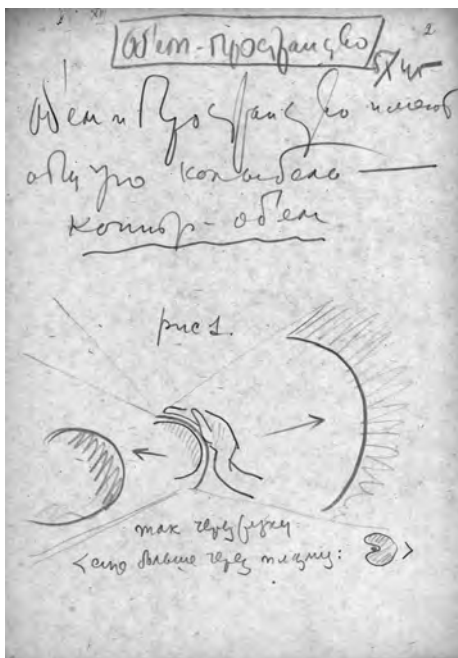 2
Об'ем-Пространство
Об'ем и Пространство имеют
общую колыбель —
контр-об'ем
рис 1.
так через руки
<еще больше через >